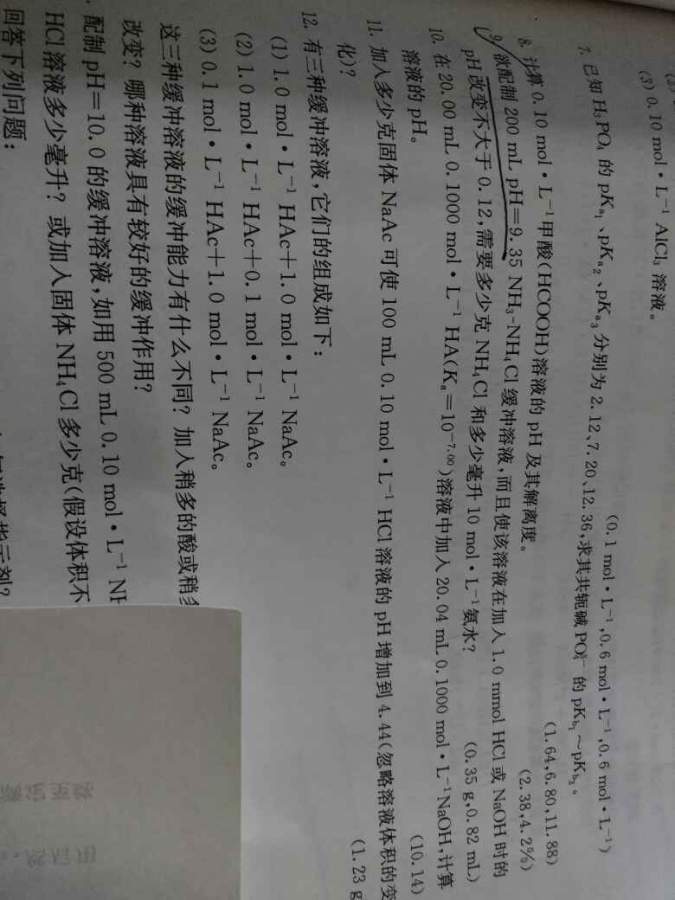 (3) 0.10 mol·L⁻¹ AlCl₃ 溶液。
(0.1 mol·L⁻¹,0.6 mol·L⁻¹,0.6 mol·L⁻¹)
7. 已知 H₃PO₄ 的 pKa₁、pKa₂、pKa₃ 分别为 2.12、7.20、12.36,求其共轭碱 PO₄³⁻ 的 pKb₁~pKb₃。
(1.64,6.80,11.88)
8. 计算 0.10 mol·L⁻¹甲酸(HCOOH)溶液的 pH 及其解离度。
(2.38,4.2%)
9. 欲配制 200 mL pH=9.35 NH₃-NH₄Cl 缓冲溶液,而且使该溶液在加入 1.0 mmol HCl 或 NaOH 时的
pH 改变不大于 0.12,需要多少克 NH₄Cl 和多少毫升 10 mol·L⁻¹氨水?
(0.35 g,0.82 mL)
10. 在 20.00 mL 0.1000 mol·L⁻¹ HA(Ka=10⁻⁷·⁰⁰)溶液中加入 20.04 mL 0.1000 mol·L⁻¹NaOH,计算
溶液的 pH。
(10.14)
11. 加入多少克固体 NaAc 可使 100 mL 0.10 mol·L⁻¹ HCl 溶液的 pH 增加到 4.44(忽略溶液体积的变
化)?
(1.23 g
12. 有三种缓冲溶液,它们的组成如下:
(1) 1.0 mol·L⁻¹ HAc+1.0 mol·L⁻¹ NaAc。
(2) 1.0 mol·L⁻¹ HAc+0.1 mol·L⁻¹ NaAc。
(3) 0.1 mol·L⁻¹ HAc+1.0 mol·L⁻¹ NaAc。
这三种缓冲溶液的缓冲能力有什么不同? 加入稍多的酸或稍多
改变? 哪种溶液具有较好的缓冲作用?
配制 pH=10.0 的缓冲溶液,如用 500 mL 0.10 mol·L⁻¹ NH
HCl 溶液多少毫升? 或加入固体 NH₄Cl 多少克(假设体积不
回答下列问题:
选择指示剂?